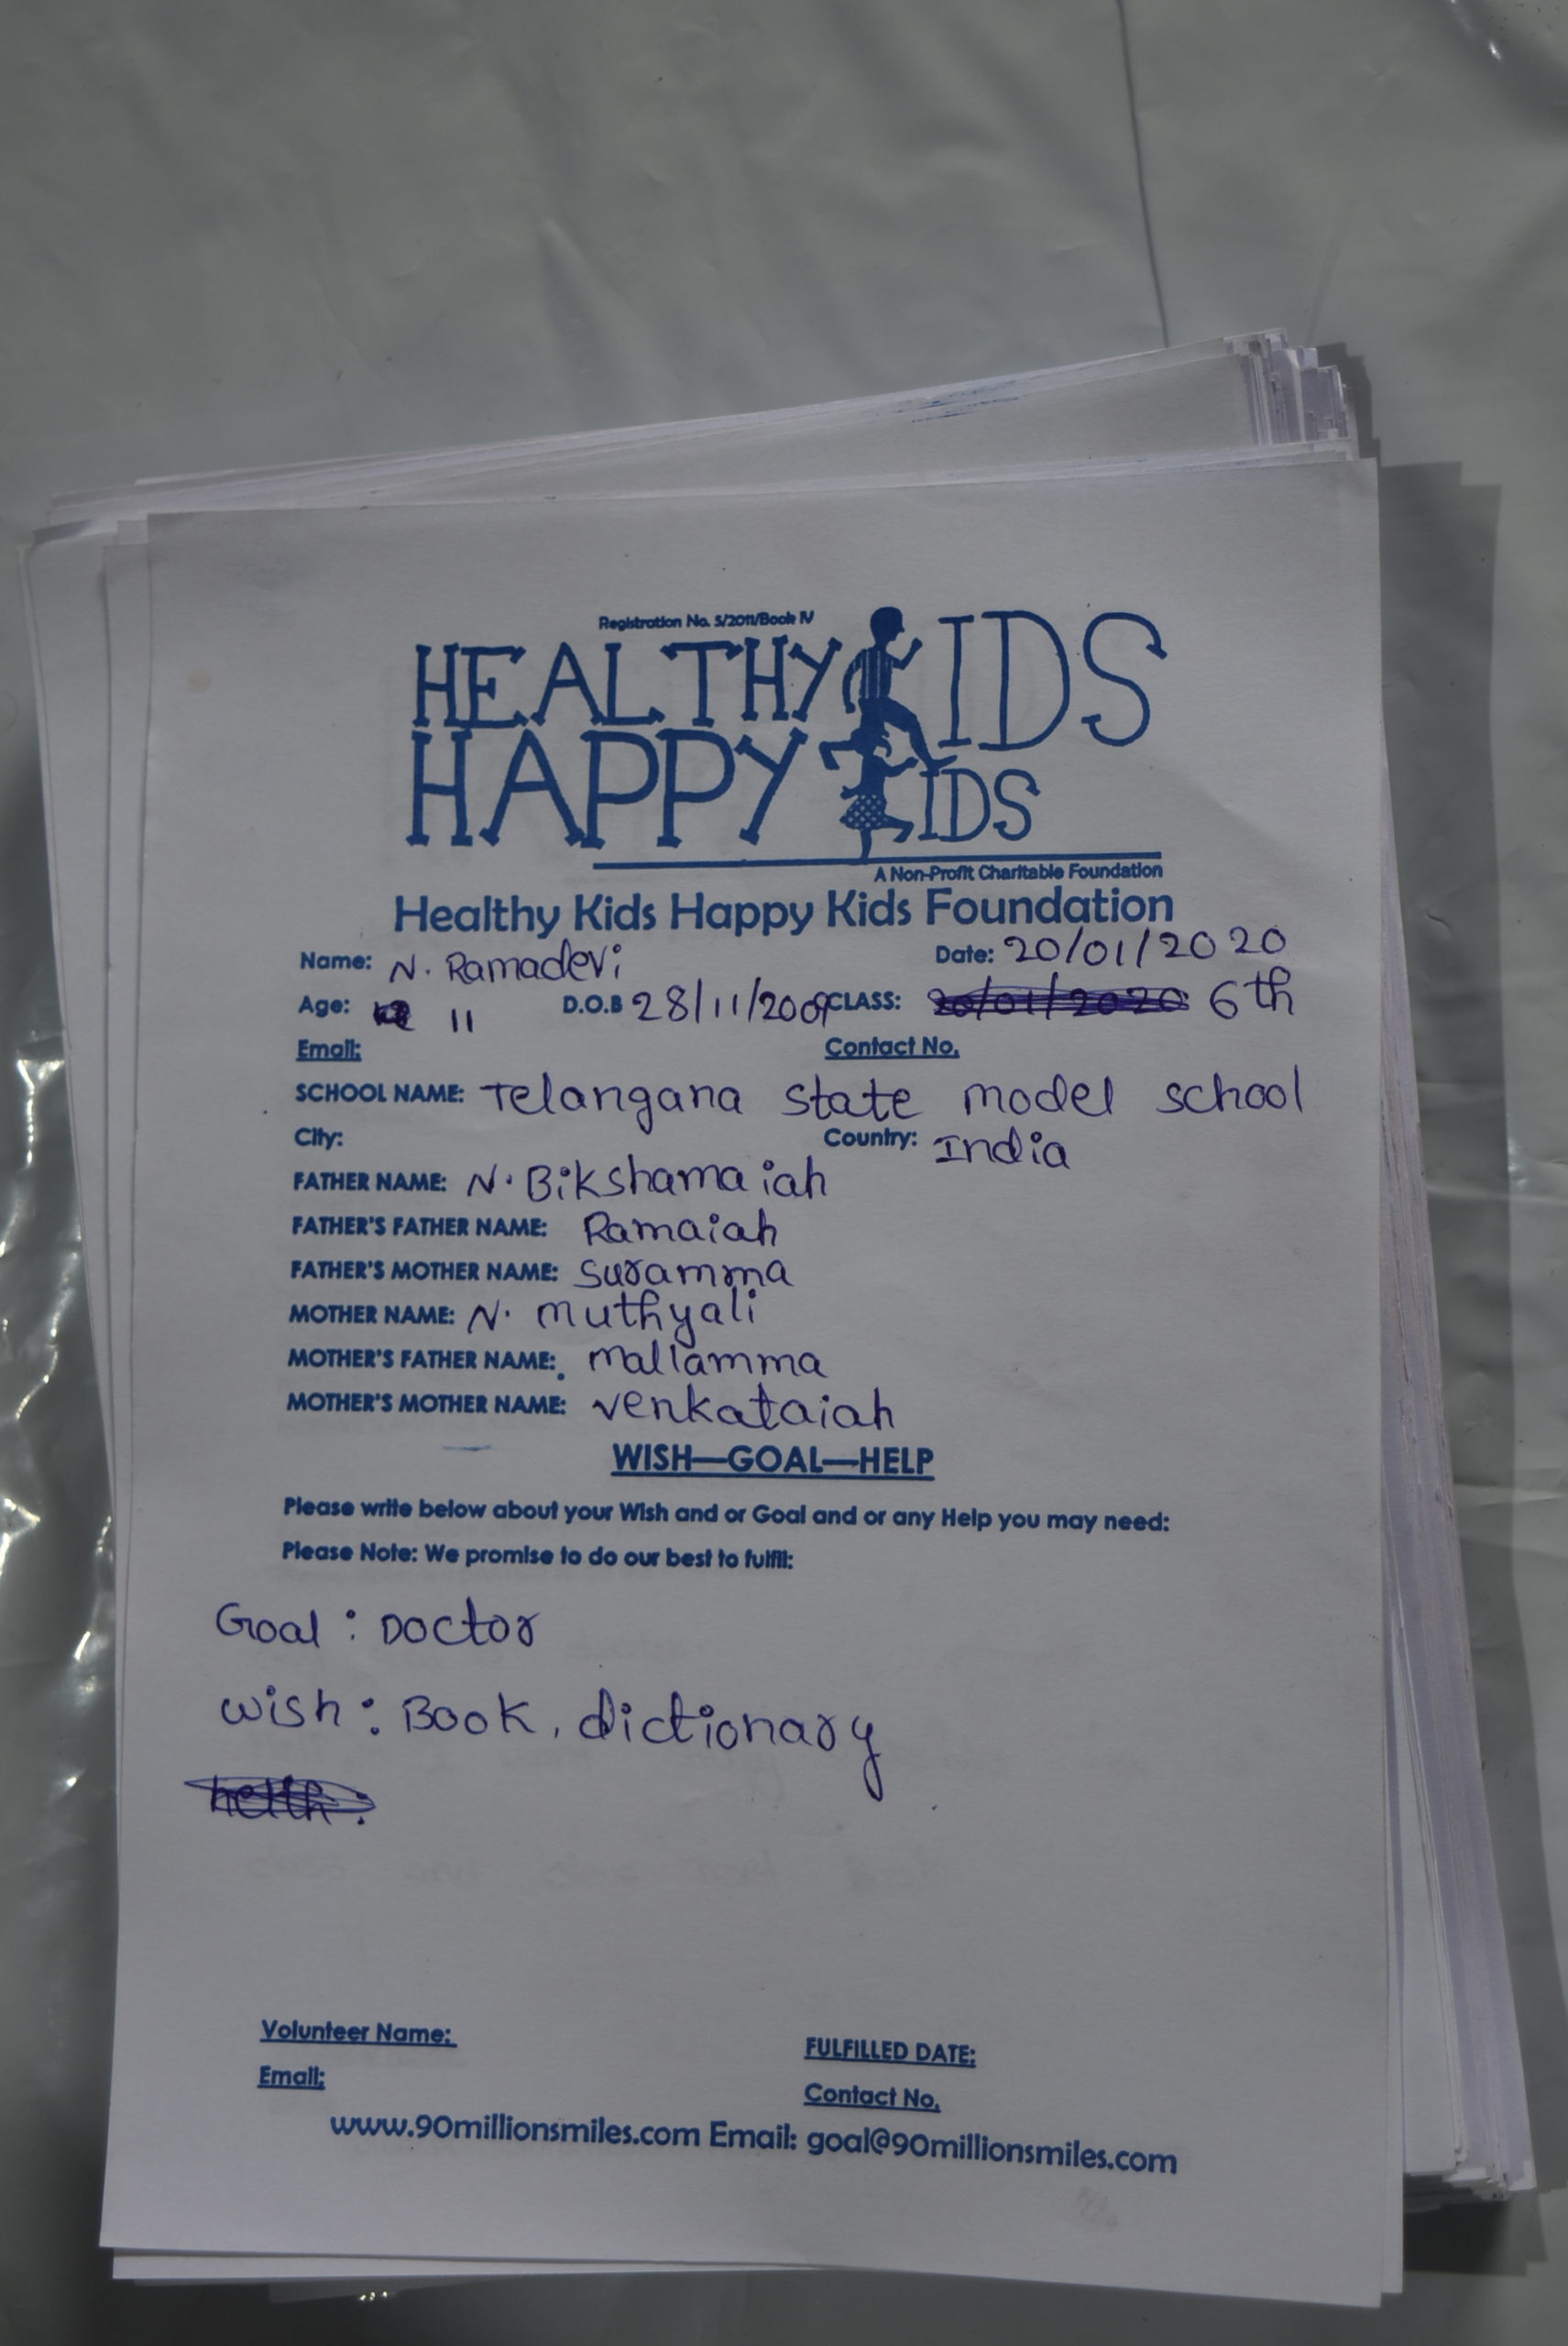 Registration No. 5/2011/Book IV
HEALTHY KIDS
HAPPY KIDS
A Non-Profit Charitable Foundation
Healthy Kids Happy Kids Foundation
Name: N. Ramadevi Date: 20/01/2020
Age: 11 D.O.B 28/11/2009 CLASS: 20/01/2020 6th
Email: Contact No.
SCHOOL NAME: Telangana state model school
City: Country: India
FATHER NAME: N. Bikshamaiah
FATHER'S FATHER NAME: Ramaiah
FATHER'S MOTHER NAME: Suramma
MOTHER NAME: N. muthyali
MOTHER'S FATHER NAME: mallamma
MOTHER'S MOTHER NAME: venkataiah
WISH—GOAL—HELP
Please write below about your Wish and or Goal and or any Help you may need:
Please Note: We promise to do our best to fulfil:
Goal : Doctor
wish : Book, dictionary
Volunteer Name: FULFILLED DATE:
Email: Contact No.
www.90millionsmiles.com Email: goal@90millionsmiles.com